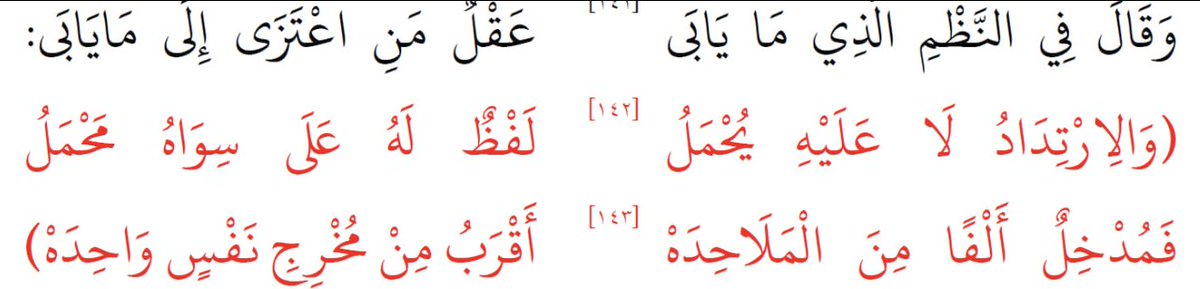 وَقَالَ فِي النَّظْمِ الَّذِي مَا يَابَى [١٤١] عَقْلُ مَنِ اعْتَزَى إِلَى مَايَابَى:
(وَالِارْتِدَادُ لَا عَلَيْهِ يُحْمَلُ [١٤٢] لَفْظٌ لَهُ عَلَى سِوَاهُ مَحْمَلُ
فَمُدْخِلٌ أَلْفًا مِنَ الْمَلَاحِدَهْ [١٤٣] أَقْرَبُ مِنْ مُخْرِجِ نَفْسٍ وَاحِدَهْ)